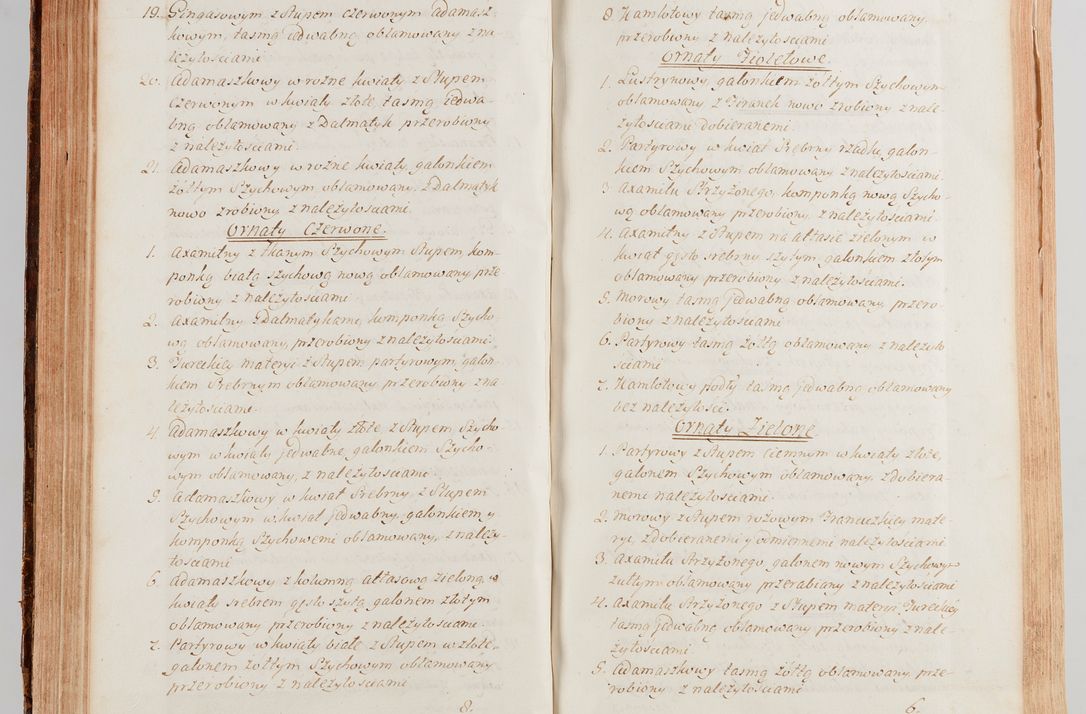 19. Gingasowym z słupem czerwonym adamasz-
kowym, tasmą jedwabną obłamowany z na
leżytościami
20. Adamaszkowy w rożne kwiaty, z słupem
czerwonym w kwiaty złote, tasmą jedwa-
bną obłamowany z Dalmatyk przerobiony
z należytościami.
21. Adamaszkowy w rożne kwiaty, galonkiem
żółtym szychowym obłamowany, z Dalmatyk
nowo zrobiony z należytościami.
Ornaty Czerwone.
1. Axamitny z tkanym szychowym słupem, kom-
ponką białą szychową nową obłamowany prze-
robiony z należytościami
2. Axamitny z Dalmatykami, komponką szycho-
wą obłamowany, przerobiony z należytościami.
3. Tureckiey materyi z słupem partyrowym, galon-
kiem srebrnym obłamowany przerobiony z na
leżytościami.
4. Adamaszkowy w kwiaty złote, z słupem szycho
wym w kwiaty jedwabne, galonkiem szycho-
wym obłamowany, z należytościami
5. Adamaszkowy w kwiat srebrny, z słupem
szychowym w kwiat jedwabny, galonkiem y
komponką szychowemi obłamowany, z należy-
tościami
6. Adamaszkowy z kolumną atłasową zieloną w
kwiaty srebrem gęsto szytą, galonem złotym
obłamowany przerobiony z należytościami.
7. Partyrowy w kwiaty białe z słupem w złote,
galonem żółtym szychowym obłamowany
przerobiony z należytościami
8.
8. Kamlotowy tasmą jedwabną obłamowany,
przerobiony z należytościami
Ornaty Fioletowe.
1. Lustrynowy, galonkiem żółtym szychowym
obłamowany z firanek nowo zrobiony z nale
żytościami dobieranemi.
2. Partyrowy w kwiat srebrny rzadki, galon-
kiem szychowym obłamowany z należytościami.
3. Axamitu strzyżonego, komponką nową szycho-
wą obłamowany przerobiony, z należytościami.
4. Axamitny z słupem na atłasie zielonym w
kwiat gęsto srebrny szytym, galonkiem złotym
obłamowany przerobiony z należytościami.
5. Morowy tasmą jedwabną obłamowany, przero-
biony z należytościami
6. Partyrowy tasmą żółtą obłamowany z należyto
ściami
7. Kamlotowy podły tasmą jedwabną obłamowany
bez należytości.
Ornaty Zielone
1. Partyrowy z słupem ciemnym w kwiaty złote,
galonem szychowym obłamowany, z dobiera-
nemi należytościami.
2. Morowy z słupem rożowym francuzkiey mate-
ryi, z dobieranemi y odmiennemi należytościami
3. Axamitu strzyżonego, galonem nowym szychowym
żułtym obłamowany przerabiany z należytościami
4. Axamitu strzyżonego z słupem materii tureckiey
tasmą jedwabną obłamowany przerobiony z nale-
żytościami.
5. Adamaszkowy tasmą żółtą obłamowany, prze-
robiony z należytościami
6.